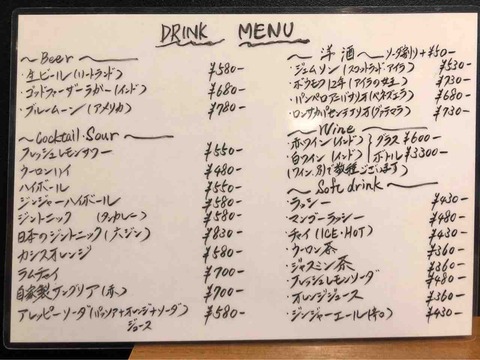 DRINK MENU
〜Beer〜
・生ビール(ハートランド) ¥580-
・ゴッドファーザーラガー(インド) ¥680-
・ブルームーン(アメリカ) ¥780-
〜Cocktail・Sour〜
フレッシュレモンサワー ¥550-
ウーロンハイ ¥480-
ハイボール ¥550-
ジンジャーハイボール ¥550-
ジントニック (タンカレー) ¥580-
日本のジントニック(六ジン) ¥830-
カシスオレンジ ¥580-
ラムチャイ ¥700-
自家製サングリア(赤) ¥700-
アレッピーソーダ(パッソア+オレンジ+ソーダ) ¥580-
ジュース
〜洋酒〜 ソーダ割り+¥50-
・ジェムソン(スコットランド・アイラ) ¥530-
・ボウモア12年(アイラの女王) ¥730-
・パンペロアニバサリオ(ベネズエラ) ¥680-
・ロンサカパセンテナリオ(グァテマラ) ¥730-
〜Wine〜
・赤ワイン(インド) グラス ¥600-
白ワイン(インド) ボトル ¥3300-
(ワイン、別で数種ございます)
〜Soft drink〜
・ラッシー ¥430-
・マンゴーラッシー ¥480-
・チャイ(ICE・HOT) ¥430-
・ウーロン茶 ¥360-
・ジャスミン茶 ¥360-
・フレッシュレモンソーダ ¥480-
・オレンジジュース ¥360-
・ジンジャーエール(辛口) ¥430-